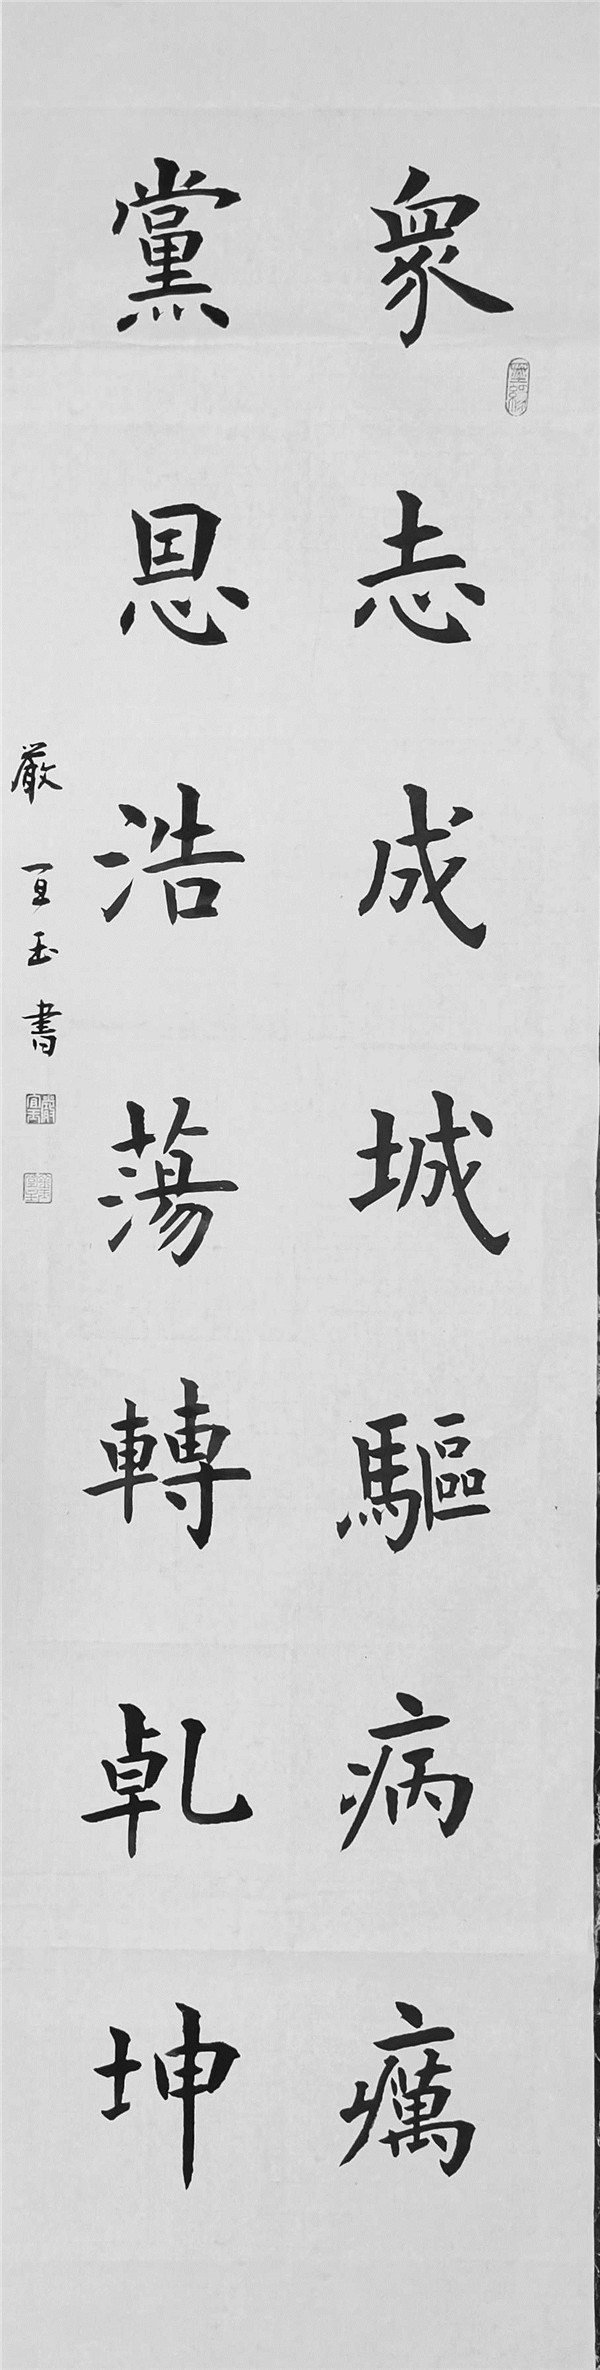 衆志成城驅病癘
黨恩浩蕩轉乹坤
嚴亘玉書